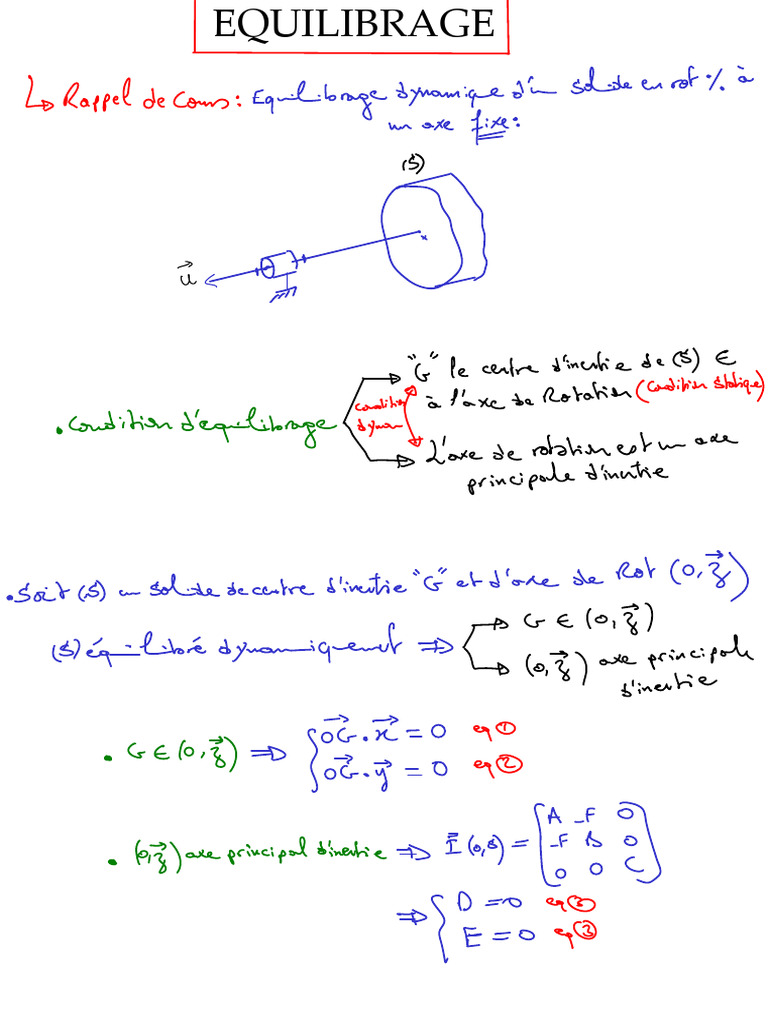 EQUILIBRAGE
↳ Rappel de Cours : Equilibrage dynamique d'un solide en rot % à
un axe fixe :
(S)
u⃗
"G" le centre d'inertie de (S) ∈
à l'axe de Rotation (Condition statique)
Condition
dynam
• Condition d'équilibrage
L'axe de rotation est un axe
principale d'inertie
• Soit (S) un solide de centre d'inertie "G" et d'axe de Rot (0, z⃗)
(S) équilibré dynamiquement ⇒
G ∈ (0, z⃗)
(0, z⃗) axe principale
d'inertie
• G ∈ (0, z⃗) ⇒ { 0G⃗ . x⃗ = 0 eq ①
0G⃗ . y⃗ = 0 eq ②
• (0, z⃗) axe principal d'inertie ⇒ I̿ (0,S) = [ A -F 0
-F B 0
0 0 C ]
⇒ { D = 0 eq ③
E = 0 eq ③